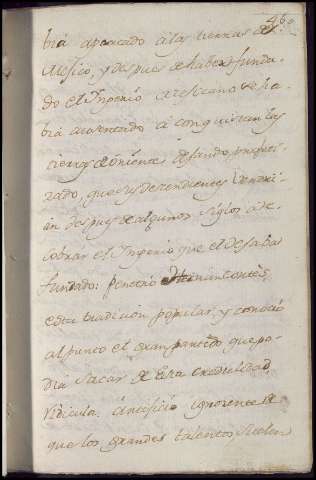 46
bia aportado a las tierras de
Mexico, y despues de haber funda-
do el Ynperio mexicano se ha-
bia ausentado a conquistar las
tierras de oriente dejando profeti-
zado, que sus decendientes vendri-
an despues de algunos siglos a re-
cobrar el Ynperio que el dejaba
fundado: penetró Hernan Cortés
esta tradicion popular, y conoció
al punto el gran partido que po-
dia sacar de esta credulidad
ridicula. Artificio ignorante de
que los grandes talentos suelen